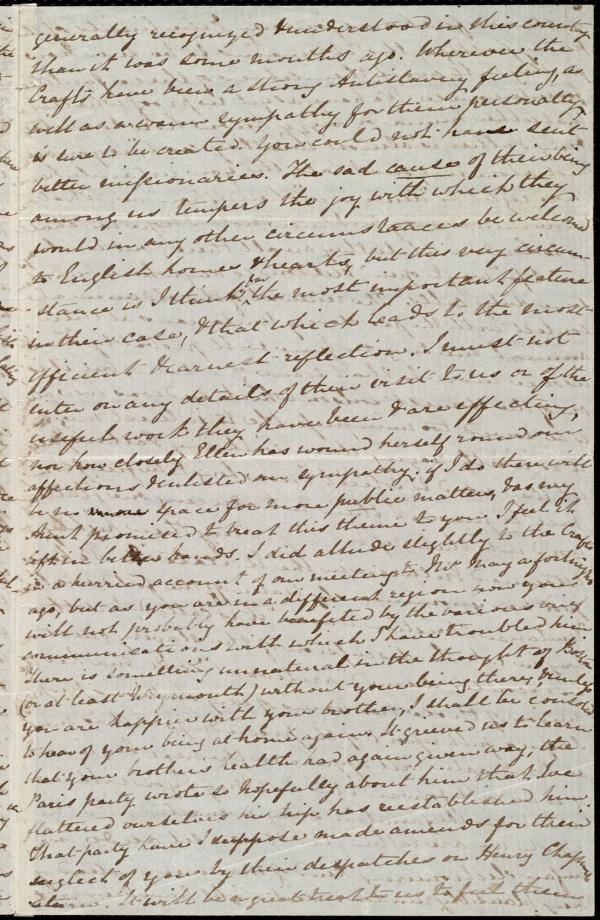 generally recognized & understood in this country
than it was some months ago. Wherever the
Crafts have been a strong Antislavery feeling, as
well as a warm sympathy for them personally,
is sure to be created. You could not have sent
better missionaries. The sad cause of their being
among us tempers the joy with which they
would in any other circumstances be welcomed
to English homes & hearts, but this very circum-
stance is I think far the most important feature
in their case, & that which leads to the most
efficient & earnest reflection. I must not
enter on any details of their visit to us or of the
useful work they have been & are effecting,
nor how closely Ellen has wound herself round our
affections & enlisted our sympathy. if I do there will
be no space for more public matters, & as my
Aunt promised to treat this theme to you I feel it
left in better hands. I did allude slightly to the Crafts
in a hurried account of our meeting to Mr May a fortnight
ago, but as you are in a different region now you
will not probably have benefited by the various
communications with which I have troubled him
There is something unnatural in the thought of Boston
(or at least Weymouth) without your being there, & unless
you are happier with your brother, I shall be consoled
to hear of your being at home again. It grieved us to learn
that your brother's health had again given way, the
Paris party wrote so hopefully about him that we
flattered ourselves his trip has reestablished him.
That party have I suppose made amends for their
neglect of you by their despatches on Henry Chapman's
return. It will be a great treat to us to feel them